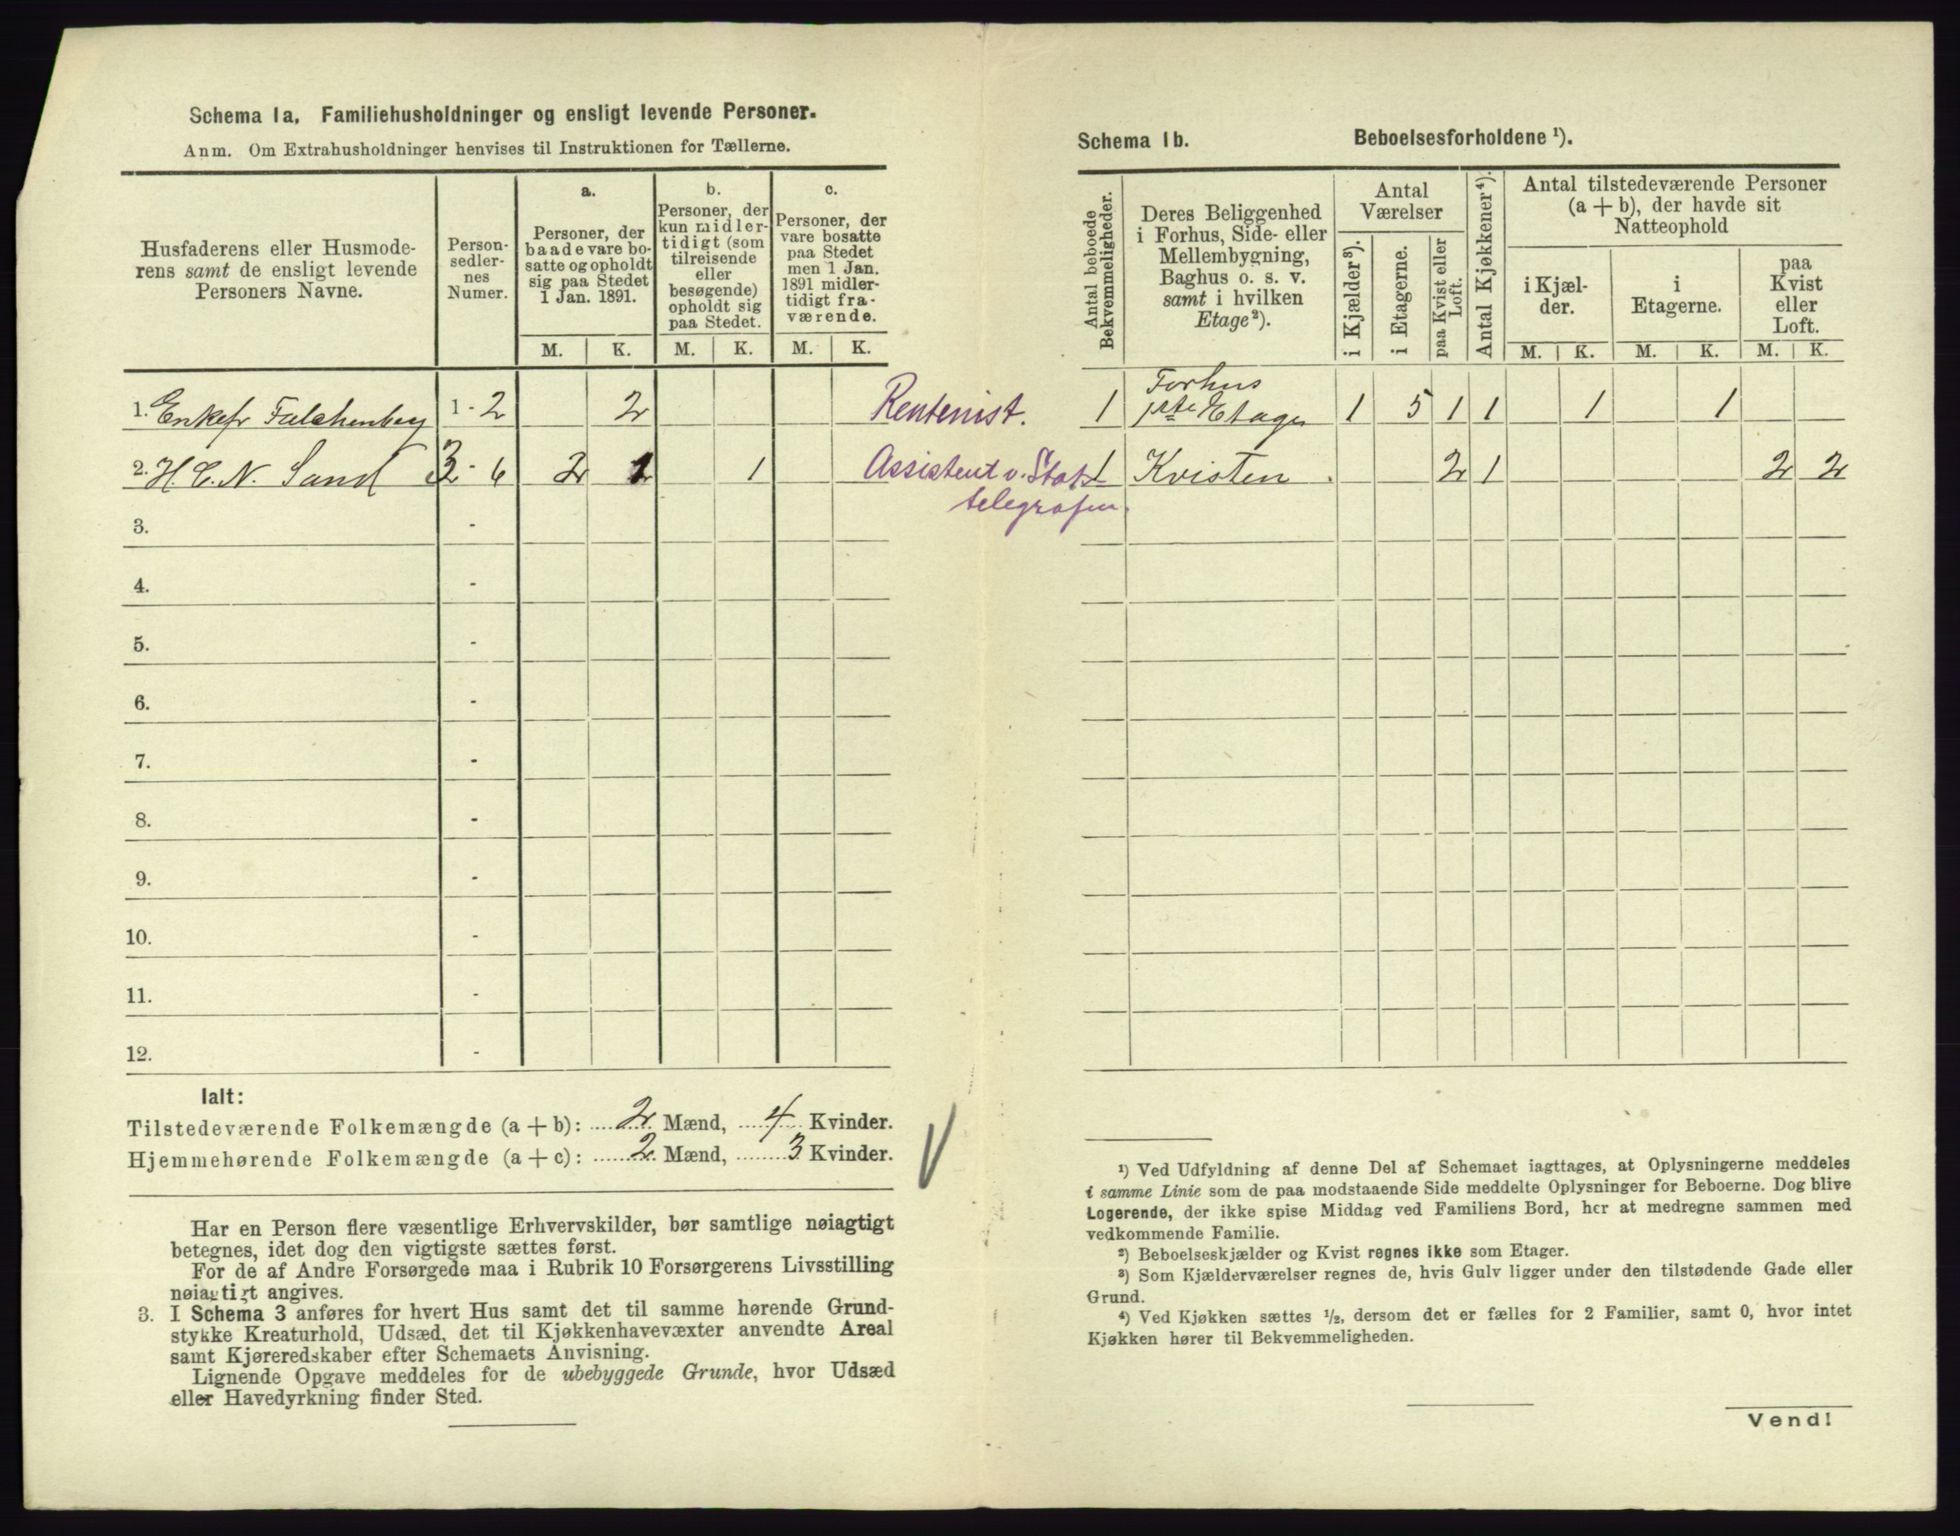 Schema 1a. Familiehusholdninger og ensligt levende Personer.
Anm. Om Extrahusholdninger henvises til Instruktionen for Tællerne.
Husfaderens eller Husmode-
rens samt de ensligt levende
Personers Navne.
Person-
sedler-
nes
Numer.
a.
Personer, der
baade vare bo-
satte og opholdt
sig paa Stedet
1 Jan. 1891.
b.
Personer, der
kun midler-
tidigt (som
tilreisende
eller
besøgende)
opholdt sig
paa Stedet.
c.
Personer, der
vare bosatte
paa Stedet
men 1 Jan.
1891 midler-
tidigt fra-
værende.
M. K. M. K. M. K.
1. Enkefr Falchenberg 1 - 2 2 Rentenist.
2. H. C. N. Sand 3 - 6 2 1 1 Assistent v. Stats-
telegrafen.
3. -
4. -
5. -
6. -
7. -
8. -
9. -
10. -
11. -
12. -
Ialt:
Tilstedeværende Folkemængde (a + b): 2 Mænd, 4 Kvinder.
Hjemmehørende Folkemængde (a + c): 2 Mænd, 3 Kvinder.
Har en Person flere væsentlige Erhvervskilder, bør samtlige nøiagtigt
betegnes, idet dog den vigtigste sættes først.
For de af Andre Forsørgede maa i Rubrik 10 Forsørgerens Livsstilling
nøiagtigt angives.
3. I Schema 3 anføres for hvert Hus samt det til samme hørende Grund-
stykke Kreaturhold, Udsæd, det til Kjøkkenhavevæxter anvendte Areal
samt Kjøreredskaber efter Schemaets Anvisning.
Lignende Opgave meddeles for de ubebyggede Grunde, hvor Udsæd
eller Havedyrkning finder Sted.
Schema 1b. Beboelsesforholdene ¹).
Antal beboede
Bekvemmeligheder.
Deres Beliggenhed
i Forhus, Side- eller
Mellembygning,
Baghus o. s. v.
samt i hvilken
Etage²).
Antal
Værelser
i Kjælder³).
i Etagerne.
paa Kvist eller
Loft.
Antal Kjøkkener⁴).
Antal tilstedeværende Personer
(a + b), der havde sit
Natteophold
i Kjæl-
der.
i
Etagerne.
paa
Kvist
eller
Loft.
M. K. M. K. M. K.
1 Forhus
1ste Etage 1 5 1 1 1 1
1 Kvisten 2 1 2 2
¹) Ved Udfyldning af denne Del af Schemaet iagttages, at Oplysningerne meddeles
i samme Linie som de paa modstaaende Side meddelte Oplysninger for Beboerne. Dog blive
Logerende, der ikke spise Middag ved Familiens Bord, her at medregne sammen med
vedkommende Familie.
²) Beboelseskjælder og Kvist regnes ikke som Etager.
³) Som Kjælderværelser regnes de, hvis Gulv ligger under den tilstødende Gade eller
Grund.
⁴) Ved Kjøkken sættes ½, dersom det er fælles for 2 Familier, samt 0, hvor intet
Kjøkken hører til Bekvemmeligheden.
Vend!